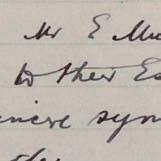 Mr E Mu
to their Es
ncere sym